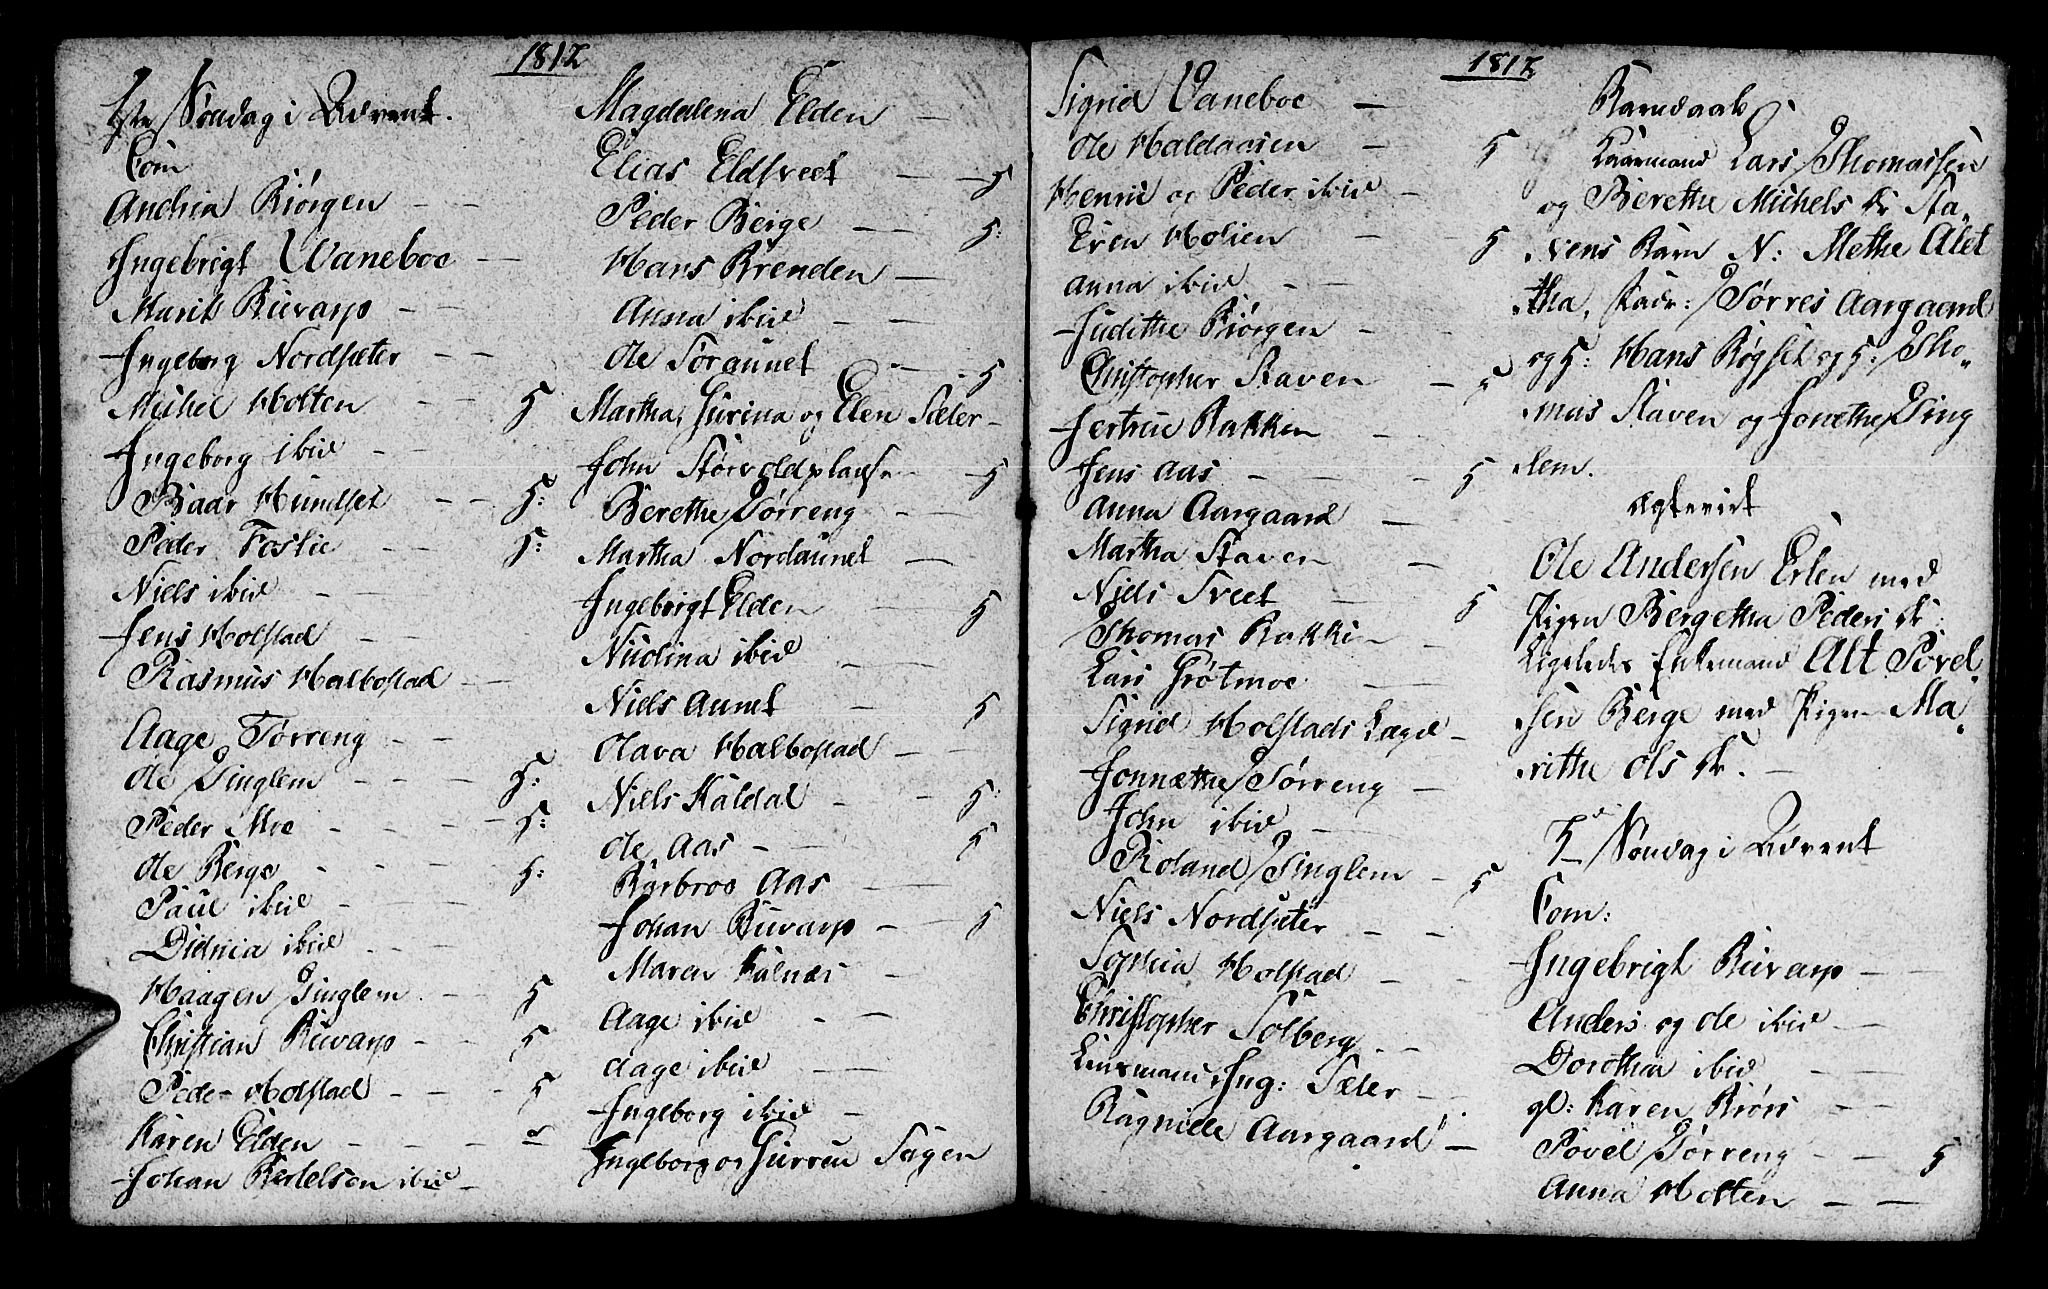 1812
1ste Søndag i Advent.
Com
Andrea Biörgen
Ingebrigt Waneboe
Marit Ruvarp
Ingeborg Nordsæter
Michel Holten 5
Ingeborg ibid
Baar Hundset 5:
Peder Foslie 5:
Niels ibid
Jens Holstad
Rasmus Halbostad
Aage Tørreng
Ole Singlem 5:
Peder Moe 5:
Ole Berge 5:
Paul ibid
Didricia ibid
Haagen Singlem 5
Christian Ruvarp 5
Peder Holstad 5
Karen Elden
Johan Bertelsen ibid
Magdalena Elden
Elias Eldtveet 5
Peder Berge 5:
Hans Brenden
Anna ibid
Ole Søraunet 5
Martha, Gurina og Elen Sæter
John Størvoldplads 5
Berethe Sørreng
Martha Nordaunet
Ingebrigt Elden 5
Nicolina ibid
Niels Aunet 5
Olava Halbostad
Niels Kaldal 5
Ole Aas 5
Barbroe Aas
Johan Ruvarp 5
Maren Kalnæs
Aage ibid
Aage ibid
Ingeborg ibid
Ingeborg og Gurroe Sagen
1812
Sigrid Vaneboe
Ole Haldaasen 5
Henric og Peder ibid
Even Molien 5
Anna ibid
Judithe Biörgen
Christopher Staven 5
Gertrue Bakken
Jens Aas 5
Anna Aargaard
Martha Staven
Niels Tveet 5
Thomas Bakken
Lars Grøtmoe
Sigrid Holstads Lægd
Jonnæthe Sørreng
John ibid
Roland Singlem 5
Niels Nordsæter
Sophia Holstad
Christopher Solberg
Lensmand Ing: Sæter
Ragnilde Aargaard
Barnedaab
Huusmand Lars Thomassen
og Berethe Michels Dr Sta-
vens Barn N: Methe Alet
tha, Fadr: Sørres Aargaard
og H: Hans Røgset og H: Tho-
mas Staven og Jonethe Sing
lem.
Ægteviet
Ole Andersen Erlen med
Pigen Bergetha Peders Dr:
Ligeledes Enkemand Alt Povel
sen Berge med Pigen Ma-
rithe Ols Dr.
3d Søndag i Advent
Com:
Ingebrigt Ruvarp
Anders og Ole ibid
Dorothea ibid
gl: Karen Biörs
Povel Sørreng 5
Anna Holten